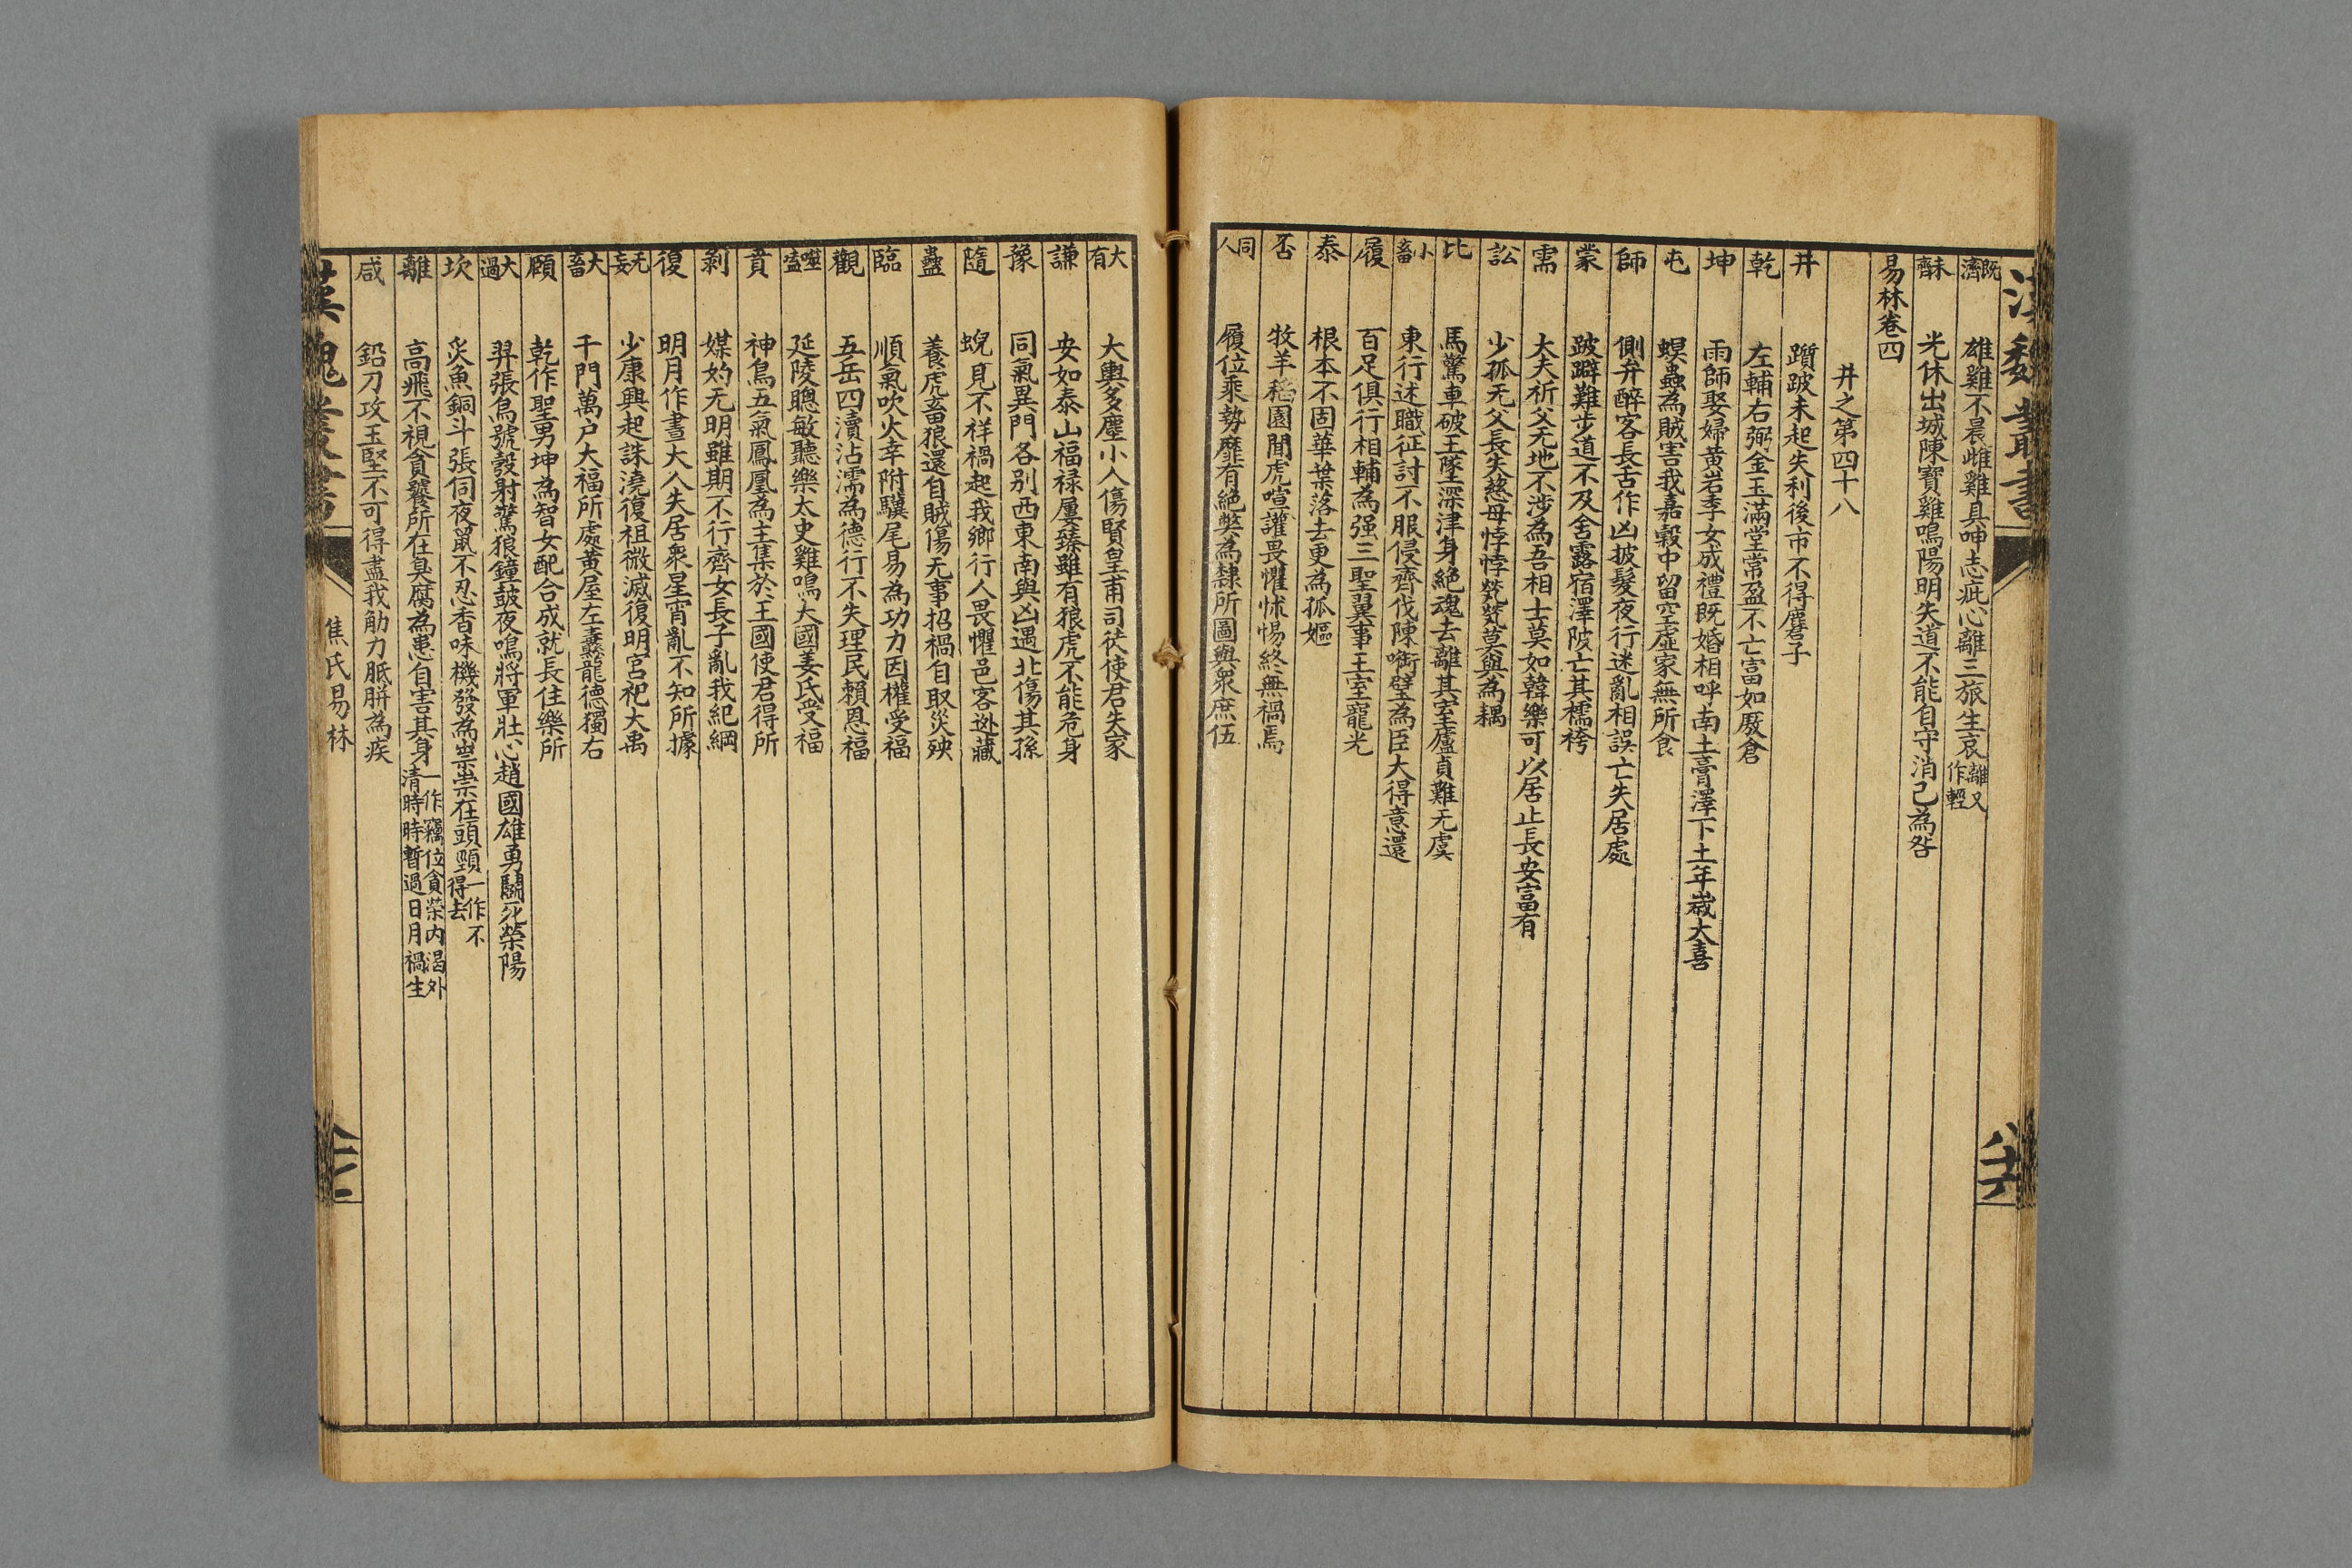 漢魏叢書
既濟 雄雞不晨雌雞具呻志疵心離三旅生哀離又作輕
未濟 光休出城陳寶雞鳴陽明失道不能自守消己為咎
易林卷四
井之第四十八
井 躓跛未起失利後市不得麞子
乾 左輔右弼金玉滿堂常盈不亡富如厫倉
坤 雨師娶婦黃岩季女成禮既婚相呼南土膏澤下土年歲大喜
屯 螟蟲為賊害我嘉穀中留空虛家無所食
蒙 跛躃難步道不及舍露宿澤陂亡其襦袴
需 大夫祈父无地不涉為吾相土莫如韓樂可以居止長安富有
訟 少孤无父長失慈母悖悖煢煢莫與為耦
師 側弁醉客長舌作凶披髮夜行迷亂相誤亡失居處
比 馬驚車破王墜深津身絕魂去離其室廬貞難无虞
小畜 東行述職征討不服侵齊伐陳啣璧為臣大得意還
履 百足俱行相輔為强三聖翼事王室寵光
泰 根本不固華葉落去更為孤嫗
否 牧羊稻園聞虎喧讙畏懼怵惕終無禍焉
同人 履位乘勢靡有絕弊為隸所圖與眾庶伍
大有 大輿多塵小人傷賢皇甫司徒使君失家
謙 安如泰山福祿屢臻雖有狼虎不能危身
豫 同氣異門各別西東南與凶遇北傷其孫
隨 蜺見不祥禍起我鄉行人畏懼邑客逃藏
蠱 養虎畜狼還自賊傷无事招禍自取災殃
臨 順氣吹火幸附驥尾易為功力因權受福
觀 五岳四瀆沾濡為德行不失理民賴恩福
噬嗑 延陵聰敏聽樂太史雞鳴大國姜氏受福
賁 神鳥五氣鳳凰為主集於王國使君得所
剝 媒妁无明雖期不行齊女長子亂我紀綱
復 明月作晝大人失居眾星宵亂不知所據
无妄 少康興起誅澆復祖微滅復明宮祀大禹
大畜 千門萬户大福所處黃屋左纛龍德獨右
頤 乾作聖男坤為智女配合成就長住樂所
大過 羿張烏號彀射驚狼鐘鼓夜鳴將軍壯心趙國雄勇鬭死滎陽
坎 炙魚銅斗張伺夜鼠不忍香味機發為祟祟在頭頸一作不得去
離 高飛不視貪饕所在臭腐為患自害其身一作竊位貪榮內濁外清時時暫過日月禍生
咸 鉛刀攻玉堅不可得盡我觔力胝胼為疾
漢魏叢書 焦氏易林